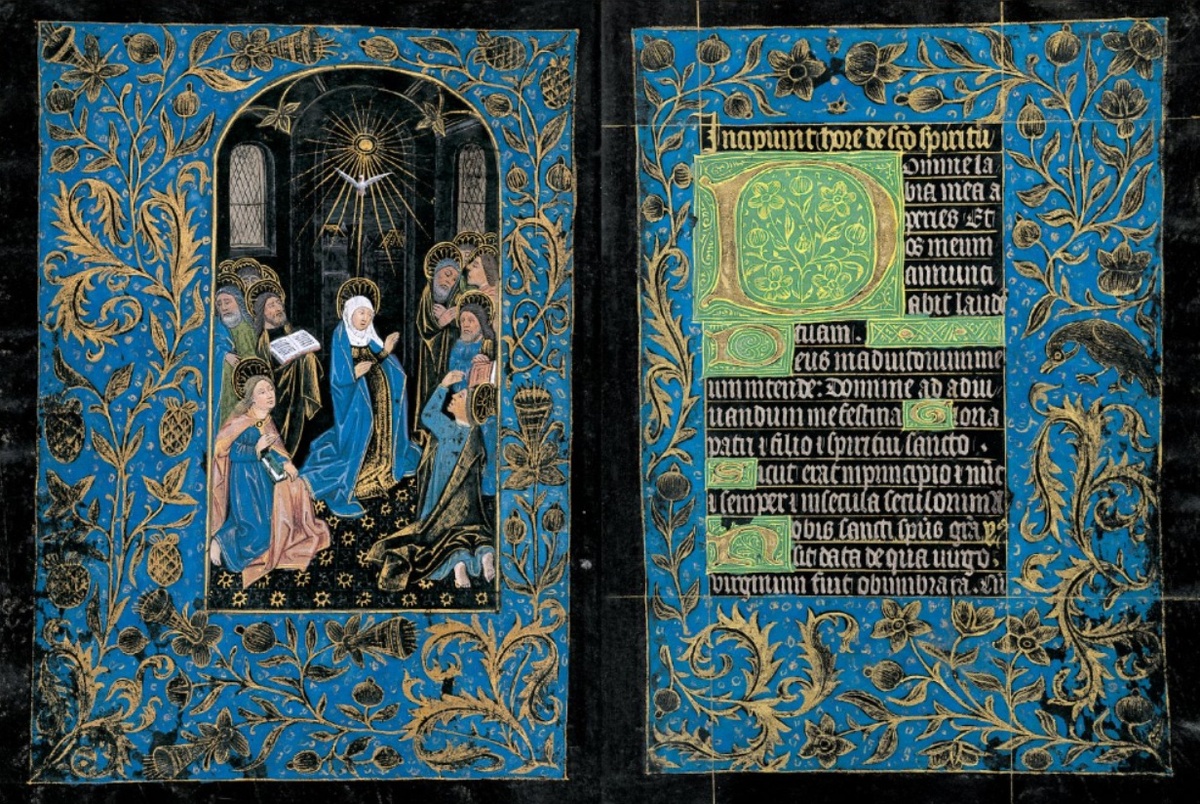 Incipiunt hore de sco spiritu
Domine la
bia mea a
peries Et
os meum
annunci
abit laude
tuam .
Deus in adiutorium me
um intende : Domine ad adiu
uandum me festina Gloria
patri ⁊ filio ⁊ spiritui sancto .
Sicut erat in principio ⁊ nūc
⁊ semper ⁊ in secula seculorum
Nobis sancti spūs grā
sit data de qua uirgo
virginum fuit obumbrata .